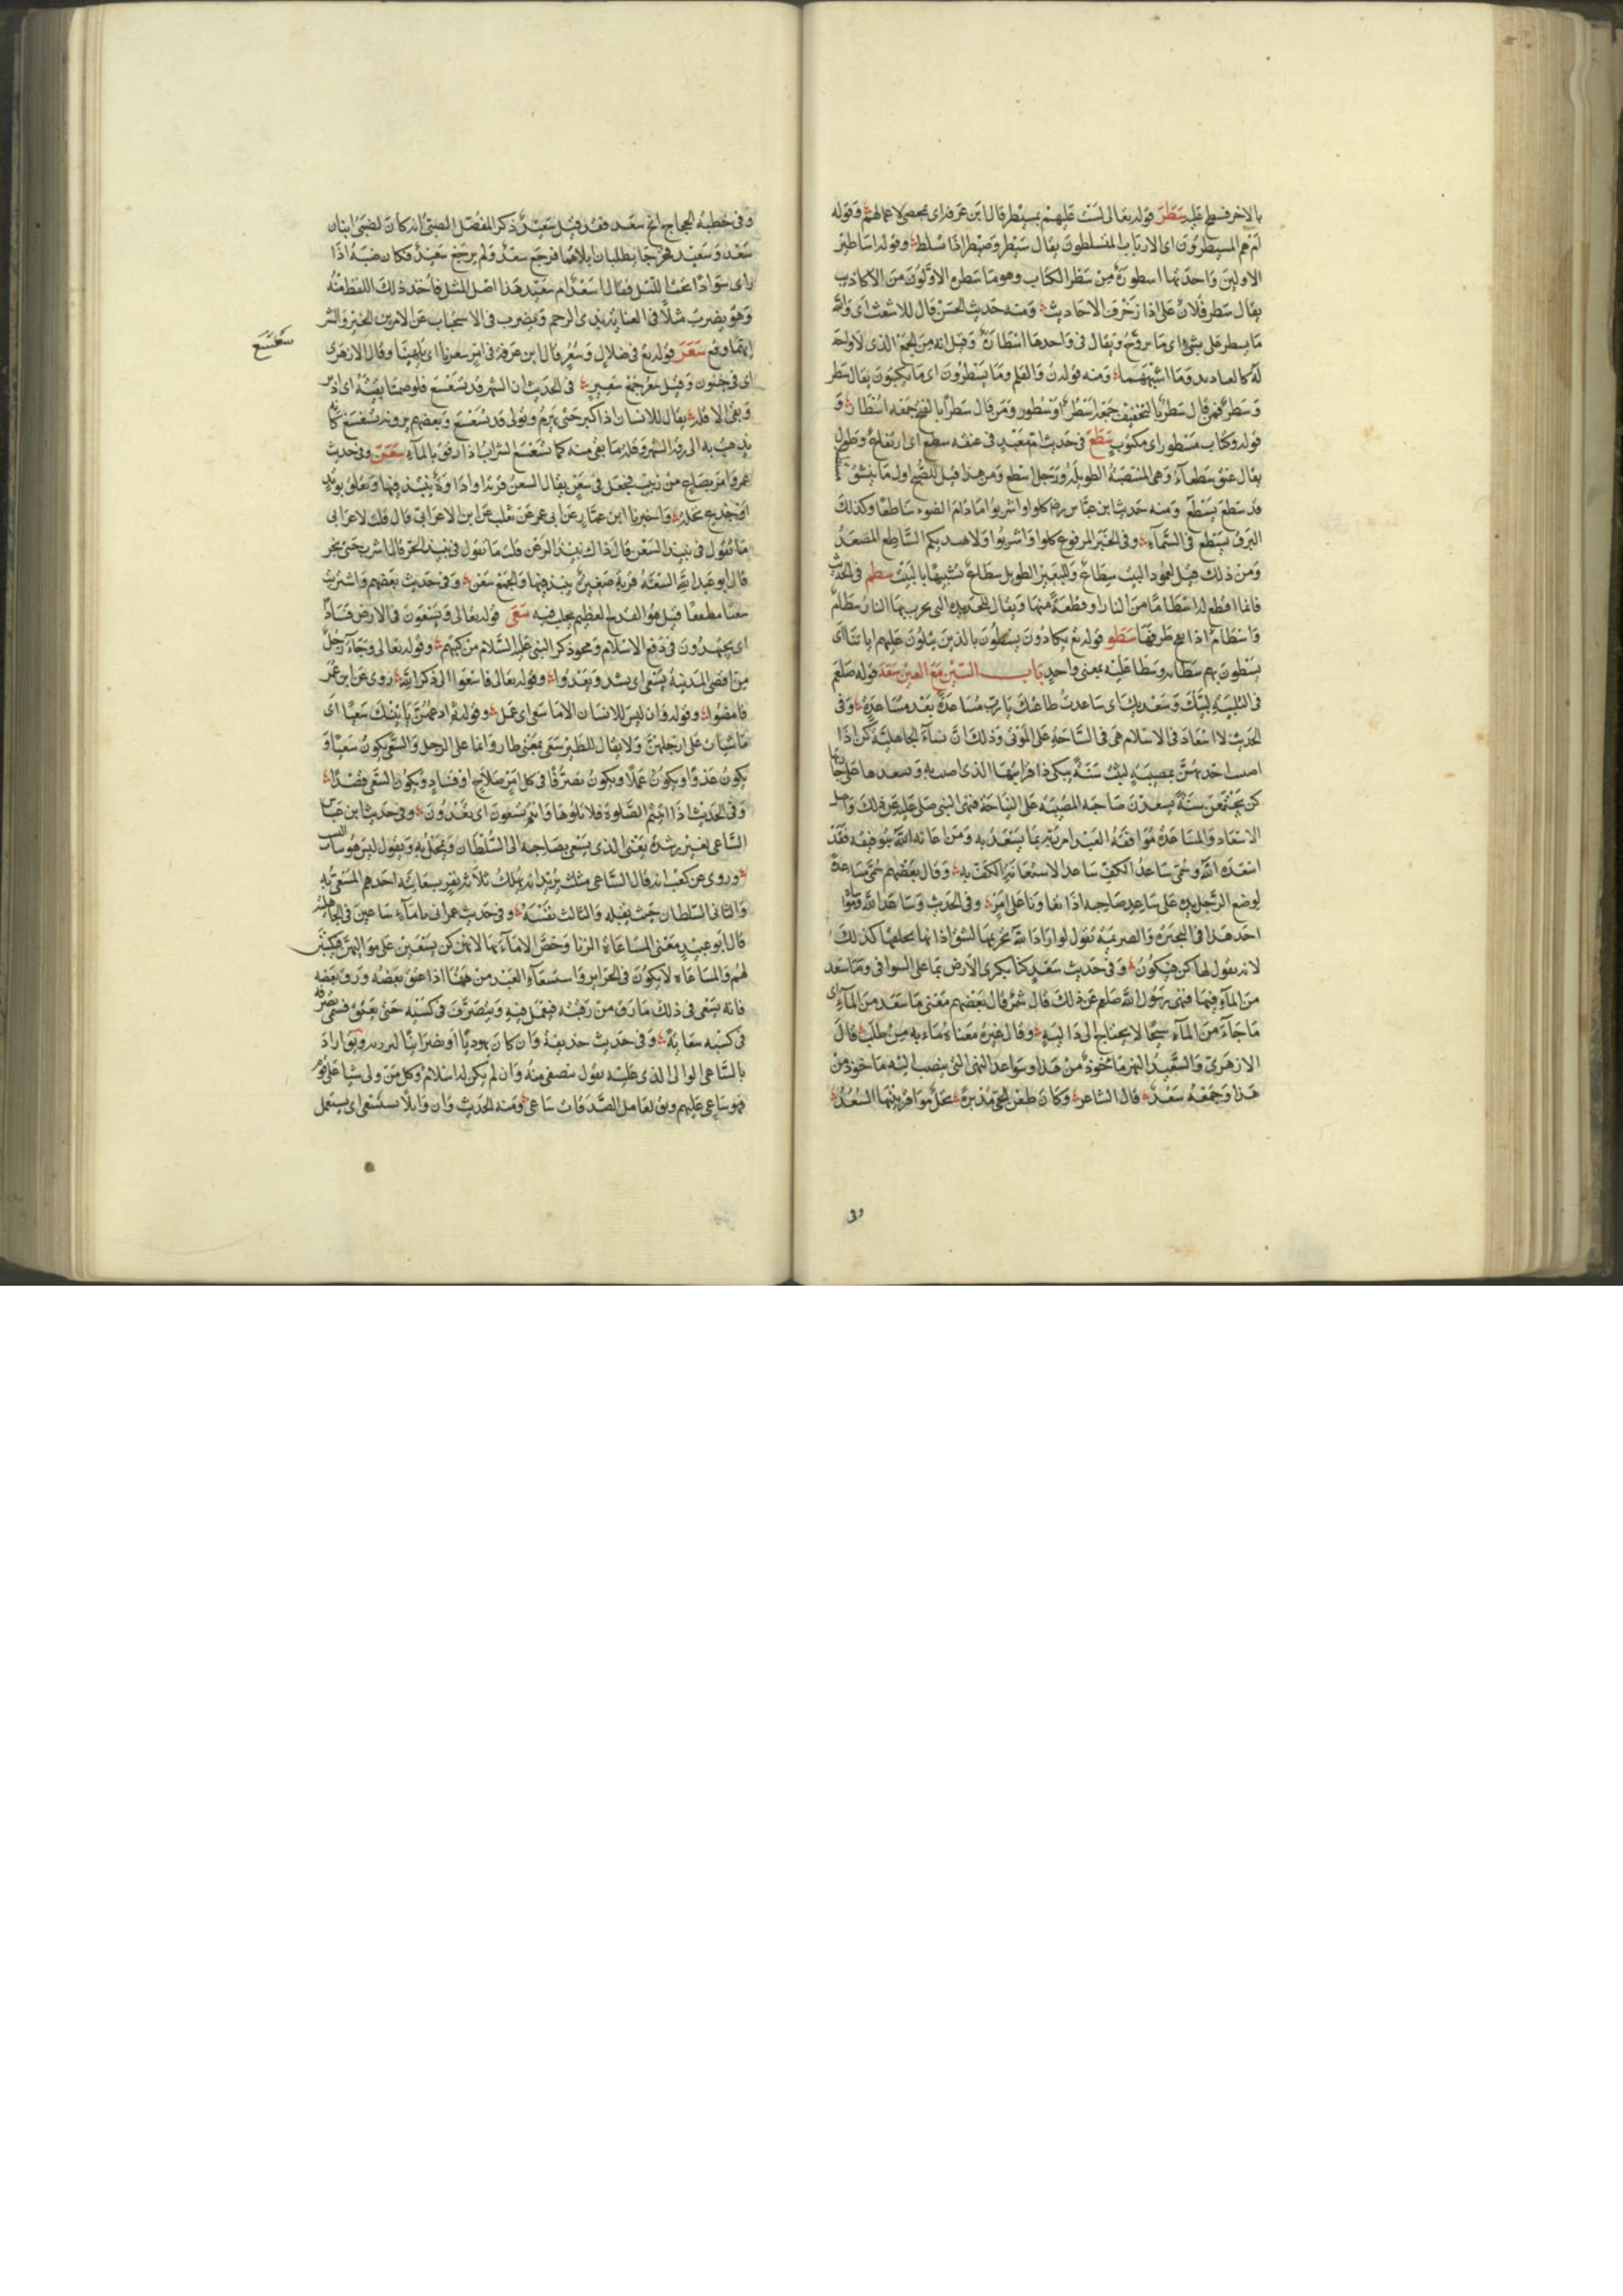 بالاخر فسطح عليه سَطَرَ قوله تعالى لست عليهم بمسيطر قال ابن عرفة اى بمحصى لاعمالهم وقوله
ام هم المسيطرون اى الارباب المتسلطون يقال سيطر وصيطر اذا تسلط وقوله اساطير
الاولين واحدتها اسطورة من سطر الكتاب وهو ما سطره الاولون من الاكاذيب
يقال سطر فلان على اذا زخرف الاحاديث ومنه حديث الحسن قال للاشعث اى والله
ما يسطر على بشئ اى ما يروج ويقال فى واحدها اسطارة وقيل انه من الجمع الذى لا واحد
له كالعباديد وما اشبههما ومنه قوله ن والقلم وما يسطرون اى ما يكتبون يقال سطر
وسطر فمن قال سطر بالتخفيف جمعه اسطر او سطور ومن قال سطرا بالفتح جمعه اسطار و
قوله وكتاب مسطور اى مكتوب سَطَعَ فى حديث ام معبد فى عنقه سطع اى ارتفاع وطول
يقال عنق سطعاء وهى المنتصبة الطويلة ورجل اسطع ومن هذا قيل للصبح اول ما ينشق
قد سطع يسطع ومنه حديث ابن عباس رضه كلوا واشربوا ما دام الضوء ساطعا وكذلك
البرق يسطع فى السماء وفى الخبر المرفوع كلوا واشربوا ولا يهيدنكم الساطع المصعد
ومن ذلك قيل لعمود البيت سطاع وللبعير الطويل سطاع تشبيها بالبيت سطم فى الحديث
فانما اقطع له اسطاما من النار او قطعة منها ويقال للحديدة التى يحرث بها النار سطام
واسطام اذا طرفها سَطَو قوله تع يكادون يسطون بالذين يتلون عليهم اياتنا اى
يسطون بهم سطا به وسطا عليه بمعنى واحد باب السين مع العين سَعَدَ قوله صلعم
فى التلبية لبيك وسعديك اى ساعدت طاعتك يا رب مساعدة بعد مساعدة وفى
الحديث لا اسعاد فى الاسلام هى فى النياحة على الموتى وذلك ان نساء الجاهلية كن اذا
اصيب احديهن بمصيبة لبثت سنة يبكى ذا قرابتها الذى اصيب به وتسعدها على جاراتها
كن يجتمعن سنة يسعدن صاحبة المصيبة على النياحة فنهى النبى صلى عليه عن ذلك واصل
الاسعاد والمساعدة موافقة العبد امر ربه بما يسعد به ومن اعانه الله بتوفيقه فقد
اسعده الله وسمى ساعد الكف ساعدا لاستعانة الكف به وقال بعضهم سمى مساعدة
لوضع الرجل يده على ساعد صاحبه اذا تعاونا على امر وفى الحديث وساعد الله وموسا
احد هذا فى البحيرة والصريمة تقول لو اراد الله تحريمها لشق اذانها بجعلها كذلك
لانه يقول لها كن فيكون وفى حديث سعد كنا نكرى الارض بما على السواقى وما سعد
من الماء فيها فنهى رسول الله صلعم عن ذلك قال شمر قال بعضهم معنى ما سعد من الماء اى
ما جاء من الماء سيحا لا يحتاج الى دالية وقال غيره معناه ما جاء به من طلب قال
الازهرى والسعيد النهر مأخوذ من هذا وسواعد النهر التى ينصب اليه ماخوذ من
هذا وجمعه سعد قال الشاعر وكان ظعن الحى مدبرة نخل مواقر بينها السعد
وفى
وفى خطبة الحجاج انج سعد فقد قتل سعيد ذكر المفضل الضبى انه كان لضبة ابنان
سعد وسعيد فخرجا يطلبان ابلا لهما فرجع سعد ولم يرجع سعيد فكان ضبة اذا
راى سوادا تحت الليل قال اسعد ام سعيد هذا اصل المثل فاخذ ذلك اللفظ منه
وهو يضرب مثلا فى العناية بذى الرحم ويضرب فى الاستخبار عن الامرين الخير والشر
ايهما وقع سَعَرَ قوله تع فى ضلال وسعر قال ابن عرفة فى امر يسعرنا اى يلهبنا وقال الازهرى
اى فى جنون وقيل سعر جمع سعير فى الحديث ان الشهر قد تسعسع فلو صمنا بقيته اى ادبر
سَعْسَعَ
وبقى الا قله يقال للانسان اذا كبر حتى يهرم ويولى قد تسعسع وبعضهم يرويه تشعسع كانه
يذهب به الى رقة الشهر وقلة ما بقى منه كما يشعشع الشراب اذا رقق بالماء سَعَنَ وفى حديث
عمر وامر بصاع من زبيب فجعل فى سعن يقال السعن قربة او اداوة ينتبذ فيها ويعلق بوتد
او جذع نخلة واخبرنا ابن عمار عن ابى عمر عن ثعلب عن ابن الاعرابى قال قلت لاعرابى
ما تقول فى نبيذ السعن قال ذاك نبيذ الرعن قلت ما تقول فى نبيذ الجر قال اشرب حتى تجر
قال ابو عبد الله السعنة قربة صغيرة ينبذ فيها والجمع سعن وفى حديث بعضهم واشتريت
سعنا مطبقا قيل هو القدح العظيم يحلب فيه سَعَى قوله تعالى ويسعون فى الارض فسادا
اى يجتهدون فى دفع الاسلام ومحو ذكر النبى عليه السلام من كتبهم وقوله تعالى وجاء رجل
من اقصى المدينة يسعى اى يشتد ويعدو وقوله تعالى فاسعوا الى ذكر الله روى عن ابن عمر
فامضوا وقوله وان ليس للانسان الا ما سعى اى عمل وقوله ثم ادعهن ياتينك سعيا اى
ماشيات على ارجلهن ولا يقال للطير سعى بمعنى طار وانما على الرجل والسعى يكون سعيا و
يكون عدوا ويكون عملا ويكون تصرفا فى كل امر صلاح او فساد ويكون السعى قصدا
وفى الحديث اذا اتيتم الصلوة فلا تاتوها وانتم تسعون اى تعدون وفى حديث ابن عباس
الساعى لغير رشدة يعنى الذى يسعى بصاحبه الى السلطان ويمحل به ويقول ليس هو ثابت النسب
وروى عن كعب انه قال الساعى مثلث يريد انه يهلك ثلاثة نفر بسعايته احدهم المسعى به
والثانى السلطان حيث يقتله والثالث نفسه وفى حديث عمر اتى باماء ساعين فى الجاهلية
قال ابو عبيد معنى المساعاة الزنا وخص الاماء بها لانهن كن يسعين على مواليهن فيكسبن
لهم والمساعاة لا يكون فى الحراير واستسعاء العبد من هذا اذا عتق بعضه ورق بعضه
فانه يسعى فى ذلك ما رق من رقبته فيعمل فيه ويتصرف فى كسبه حتى يعتق فسمى تصرفه
فى كسبه سعاية وفى حديث حذيفة وان كان يهوديا او نصرانيا ليردنه على ساعيه اراد
بالساعى الوالى الذى عليه يقول ينصفنى منه وان لم يكن له اسلام وكل من ولى شيا على قوم
فهو ساعى عليهم ويق لعامل الصدقات ساعى ومنه الحديث وان وايلا يستسعى اى يستعمل